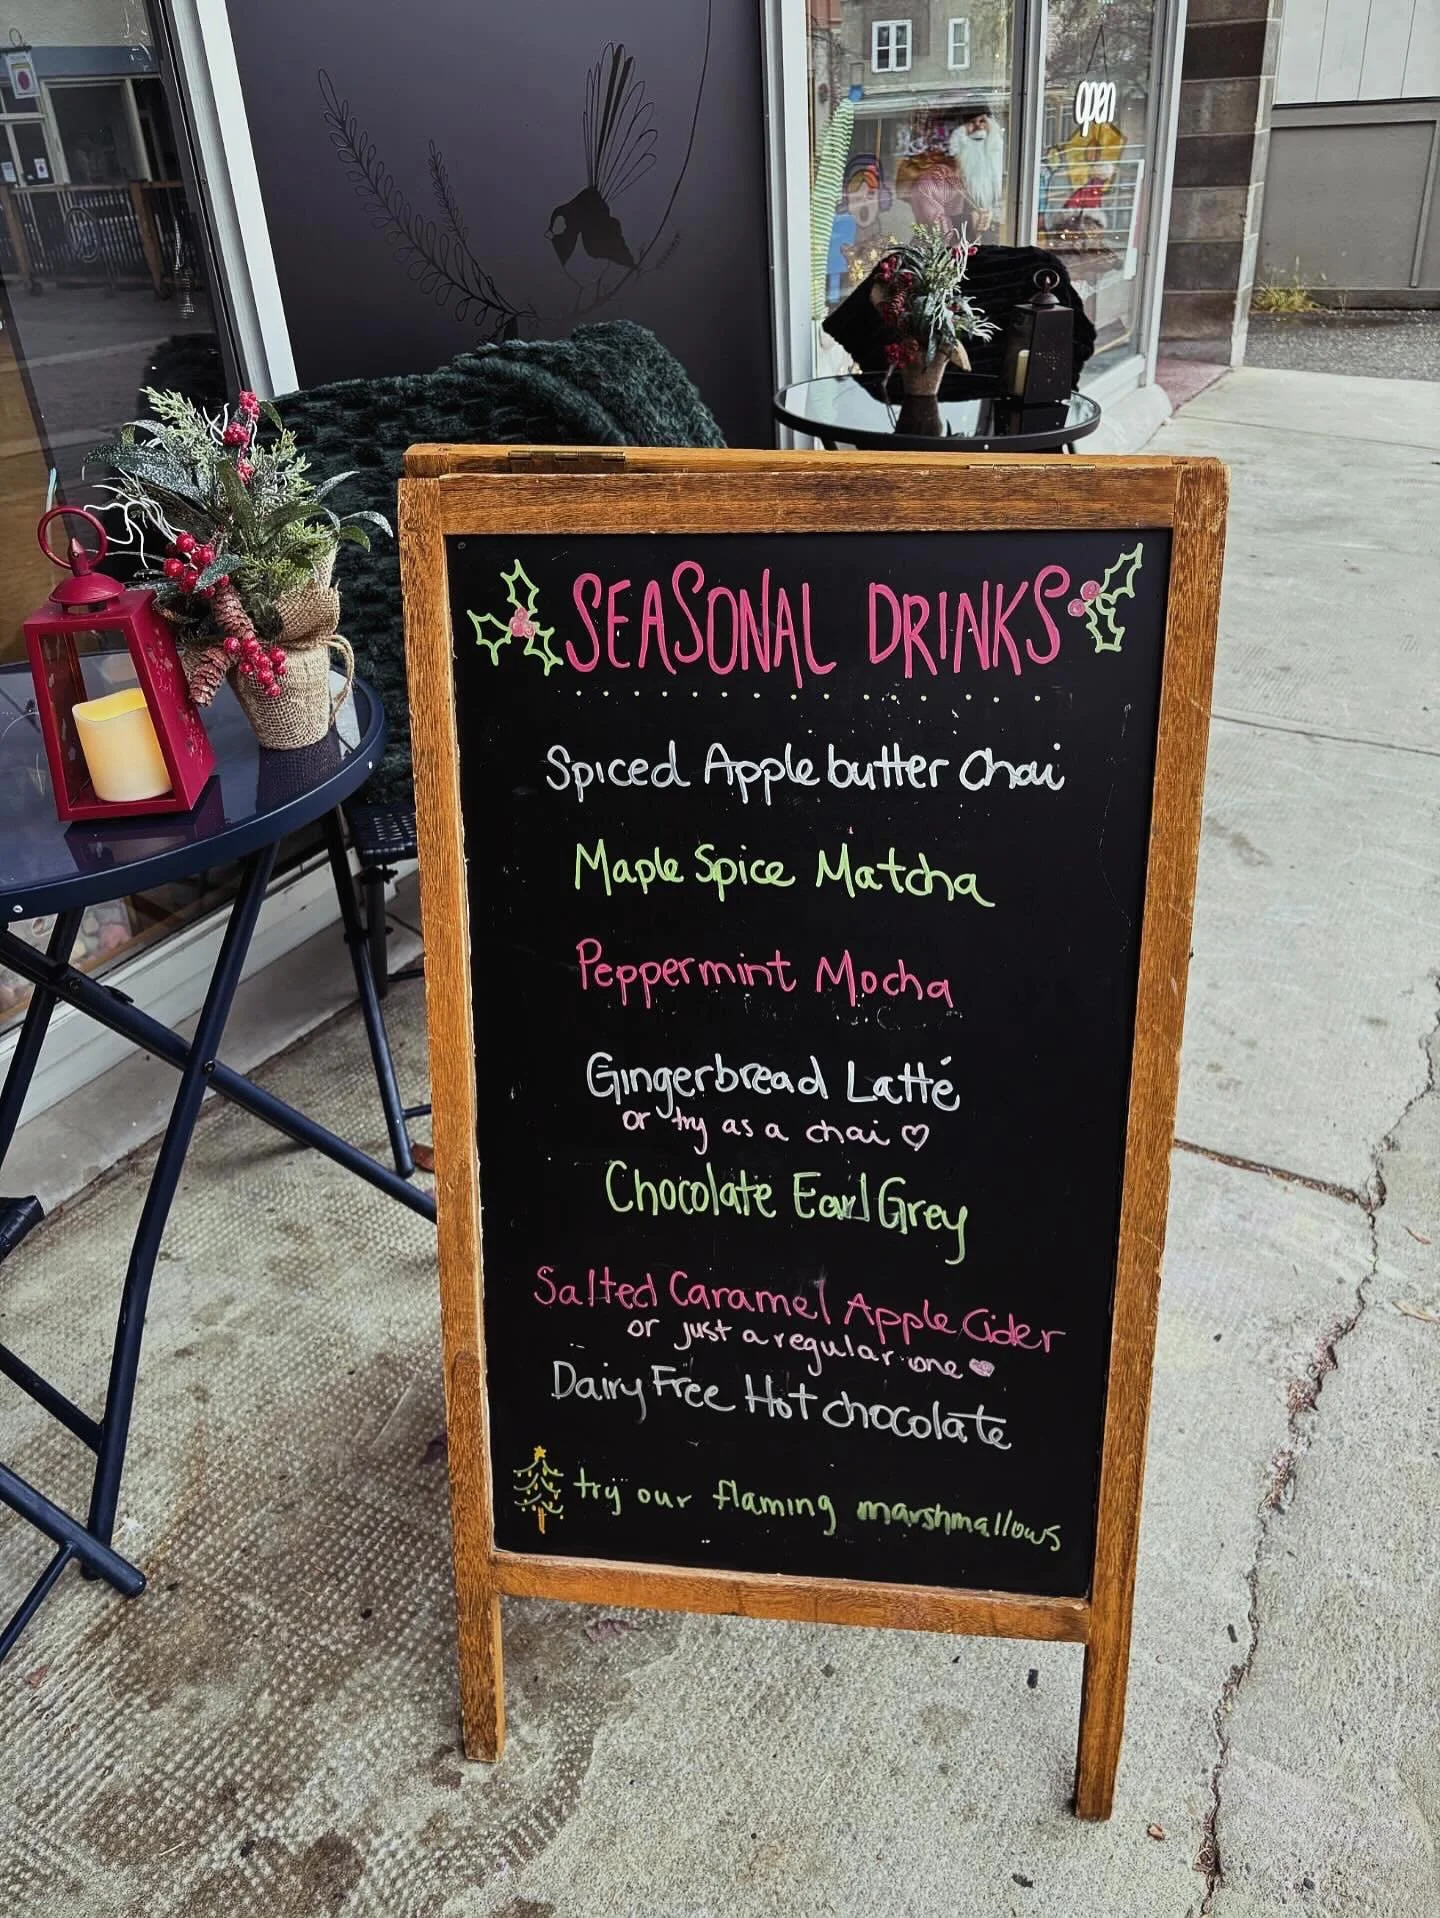 open
SEASONAL DRINKS
Spiced Apple butter Chai
Maple Spice Matcha
Peppermint Mocha
Gingerbread Latté
or try as a chai ♡
Chocolate Earl Grey
Salted Caramel Apple Cider
or just a regular one ♥
Dairy Free Hot chocolate
try our flaming marshmallows